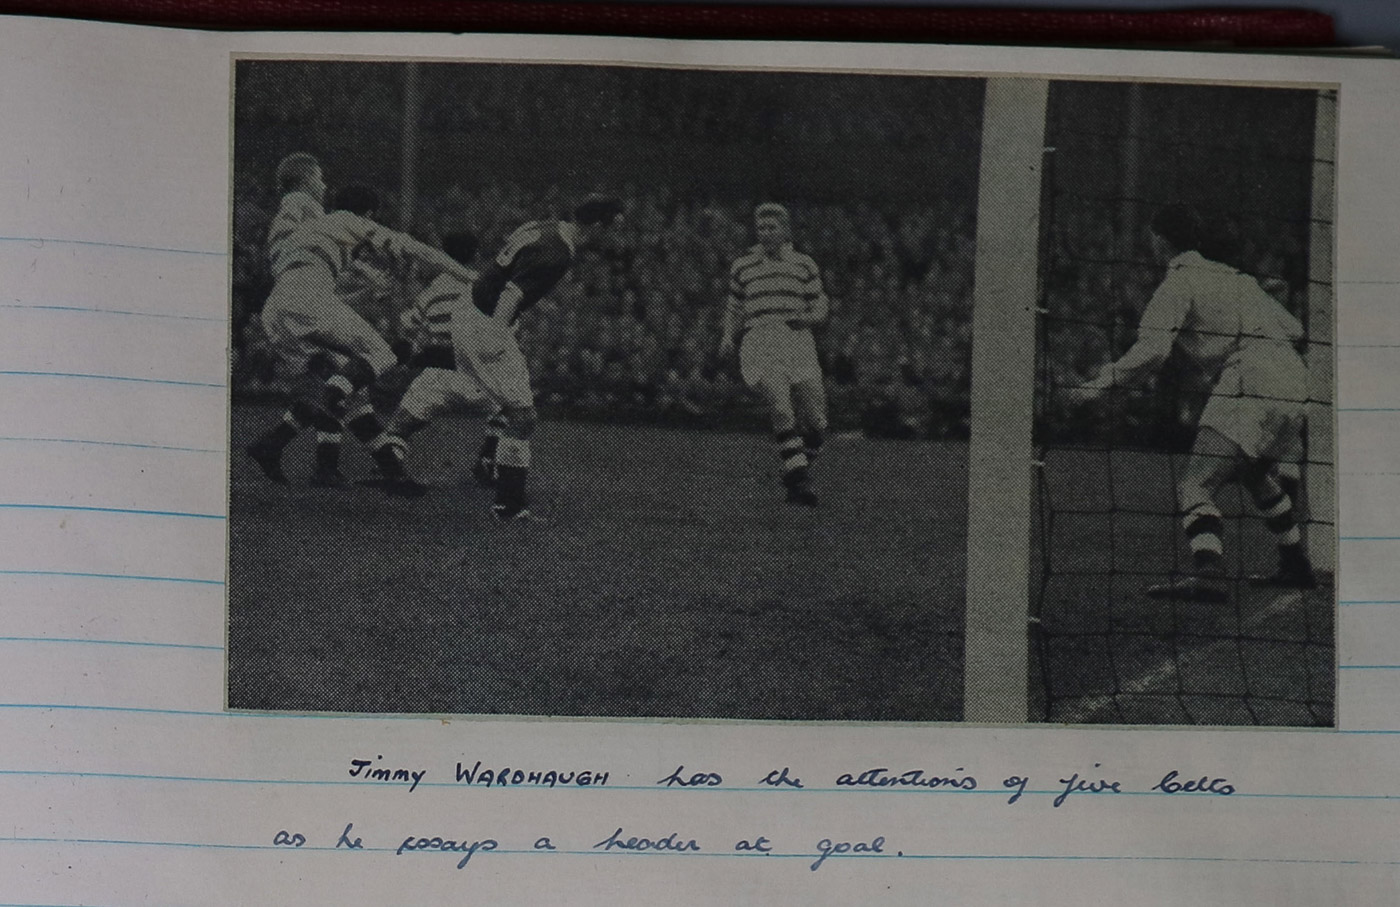 Jimmy WARDHAUGH has the attentions of five Celts
as he essays a header at goal.